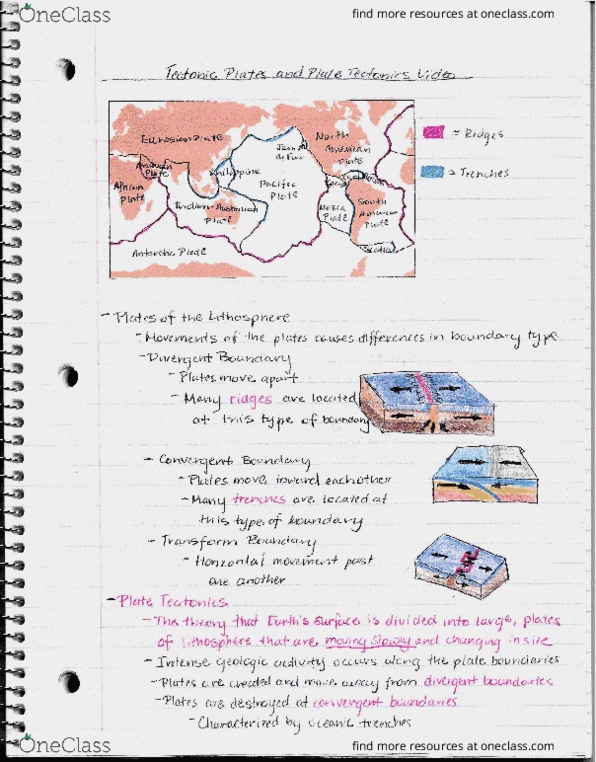 OneClass
find more resources at oneclass.com
Tectonic Plates and Plate Tectonics Video
Eurasian Plate
North American Plate
Juan de Fuca
Arabian Plate
Philippine
African Plate
Pacific Plate
Indian-Australian Plate
Nazca Plate
South American Plate
Antarctic Plate
Scotia
= Ridges
= Trenches
- Plates of the Lithosphere
- Movements of the plates causes differences in boundary type
- Divergent Boundary
- Plates move apart
- Many ridges are located
at this type of boundary
- Convergent Boundary
- Plates move toward eachother
- Many trenches are located at
this type of boundary
- Transform Boundary
- Horizontal movement past
one another
- Plate Tectonics
- The theory that Earth's surface is divided into large, plates
of lithosphere that are moving slowly and changing in size
- Intense geologic activity occurs along the plate boundaries
- Plates are created and move away from divergent boundaries
- Plates are destroyed at convergent boundaries
- Characterized by oceanic trenches
OneClass
find more resources at oneclass.com